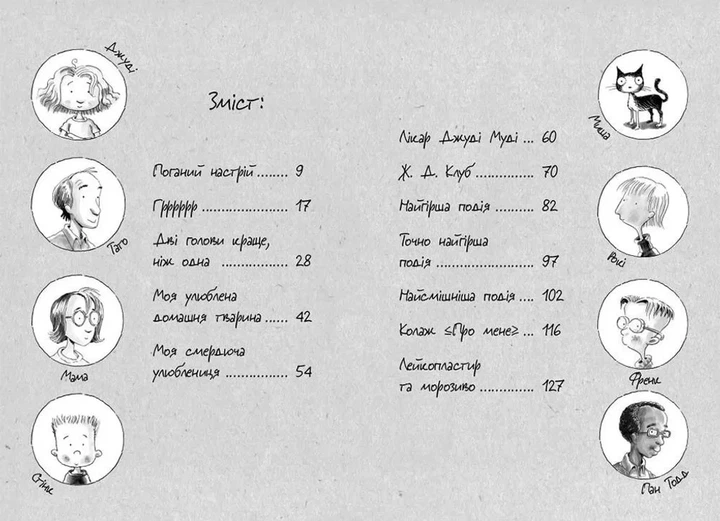 Джуді
Тато
Мама
Стінк
Зміст:
Поганий настрій ........ 9
Гррррр ...................... 17
Дві голови краще,
ніж одна ................. 28
Моя улюблена
домашня тварина ...... 42
Моя смердюча
улюблениця ................ 54
Лікар Джуді Муді ... 60
Ж. Д. Клуб ............... 70
Найгірша подія ......... 82
Точно найгірша
подія ......................... 97
Найсмішніша подія .... 102
Колаж ≤Про мене≥ ... 116
Лейкопластир
та морозиво .............. 127
Миша
Рокі
Френк
Пан Тодд